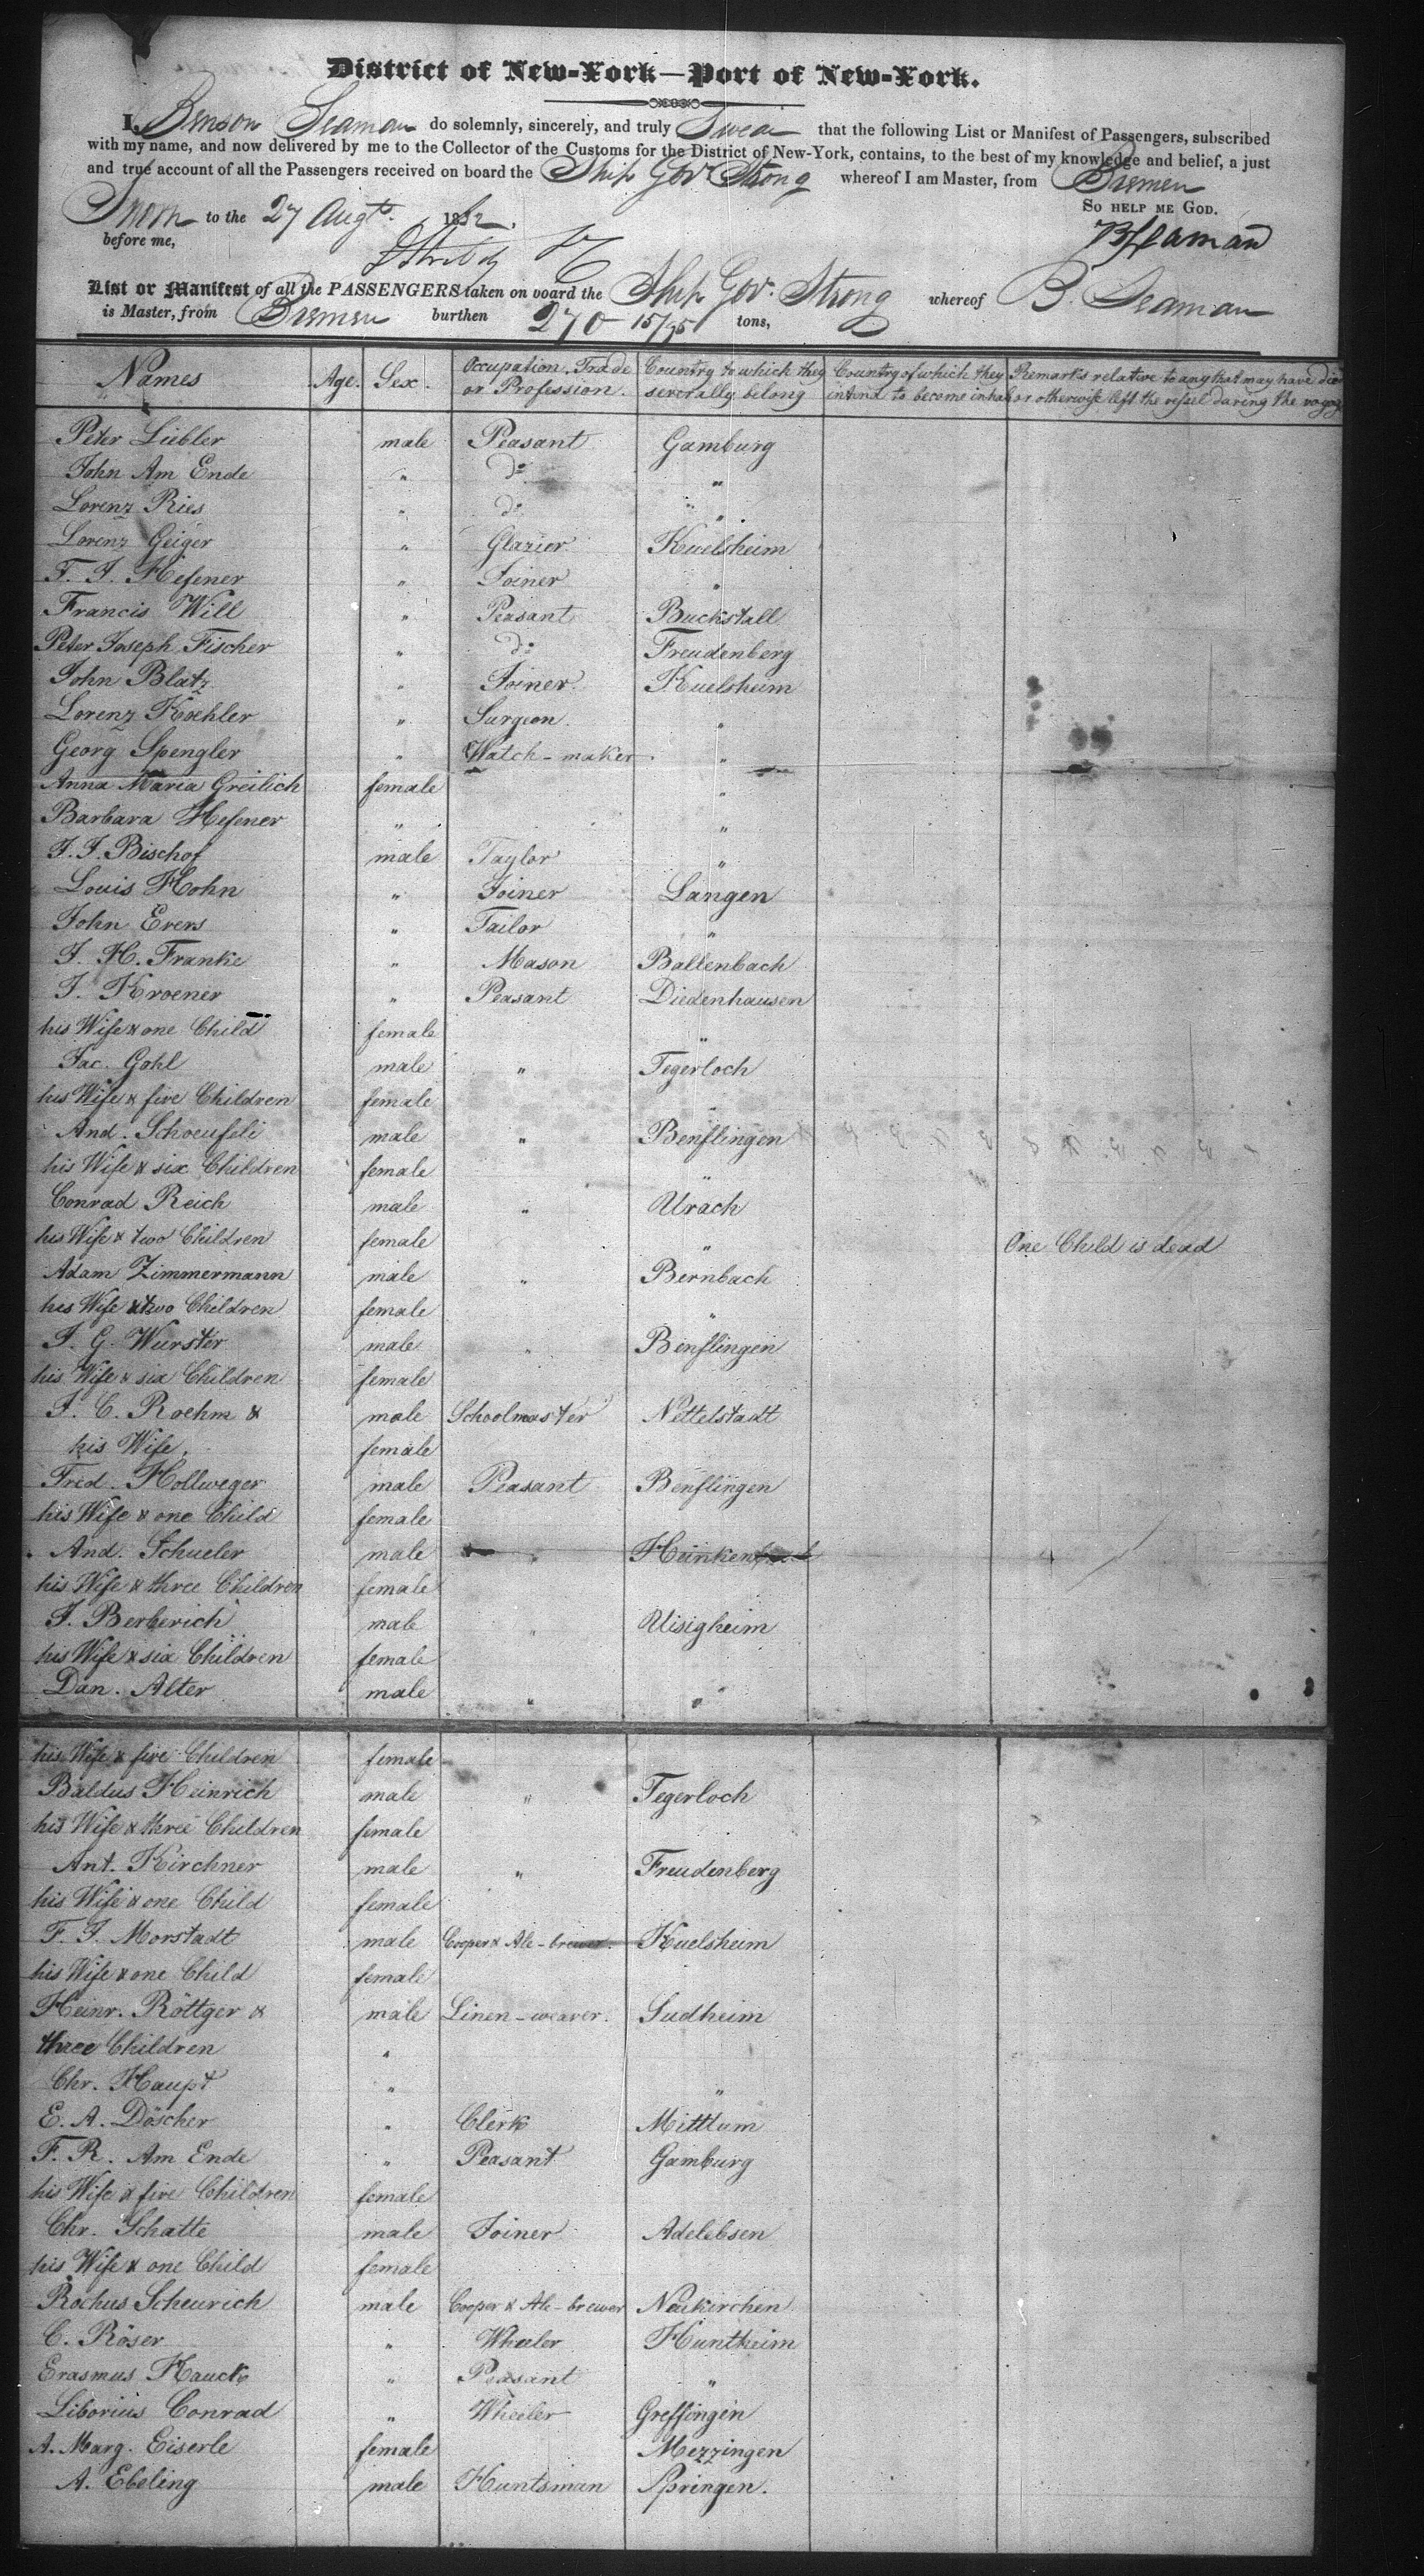 District of New-York—Port of New-York.
I, Benson Seaman do solemnly, sincerely, and truly Swear that the following List or Manifest of Passengers, subscribed
with my name, and now delivered by me to the Collector of the Customs for the District of New-York, contains, to the best of my knowledge and belief, a just
and true account of all the Passengers received on board the Ship Gov Strong whereof I am Master, from Bremen
Sworn to the 27 Augt. 1832. So help me God.
before me, B Seaman
List or Manifest of all the PASSENGERS taken on board the Ship Gov. Strong whereof B. Seaman
is Master, from Bremen burthen 270 15/95 tons,
Names Age. Sex. Occupation, Trade or Profession. Country to which they severally belong Country of which they intend to become inhab Remarks relative to any that may have died or otherwise left the vessel during the voyage
Peter Liebler male Peasant Gamburg
John Am Ende " do "
Lorenz Ries " do "
Lorenz Geiger " Glazier Kuelsheim
F. J. Hefsner " Joiner "
Francis Will " Peasant Buckstall
Peter Joseph Fischer " do Freudenberg
John Blatz " Joiner Kuelsheim
Lorenz Koehler " Surgeon "
Georg Spengler " Watch-maker "
Anna Maria Greilich female "
Barbara Hefsner " "
F. J. Bischof male Taylor "
Louis Hohn " Joiner Langen
John Evers " Tailor "
J. H. Franke " Mason Baltenbach
J. Kroener " Peasant Diedenhausen
his Wife & one Child female "
Jac. Gohl male " Tegerloch
his Wife & five Children female "
And. Schoeufeli male " Benflingen
his Wife & six Children female "
Conrad Reich male " Urach
his Wife & two Children female " One Child is dead
Adam Zimmermann male " Bernbach
his Wife & two Children female "
J. G. Wurster male " Benflingen
his Wife & six Children female
J. C. Roehm & male Schoolmaster Nettelstadt
his Wife, female
Fred. Hollweger male Peasant Benflingen
his Wife & one Child female
And. Schueler male "
his Wife & three Children female
J. Berberich male " Uisigheim
his Wife & six Children female
Dan. Alter male " "
his Wife & five Children female
Baldus Heinrich male " Tegerloch
his Wife & three Children female
Ant. Kirchner male " Freudenberg
his Wife & one Child female
F. J. Morstadt male Cooper & Ale-brewer. Kuelsheim
his Wife & one Child female
Heinr. Röttger & male Linen-weaver. Sudheim
three Children "
Chr. Haupt " "
E. A. Döscher " Clerk Mittlum
F. R. Am Ende " Peasant Gamburg
his Wife & five Children female
Chr. Schatte male Joiner Adelebsen
his Wife & one Child female
Rochus Scheurich male Cooper & Ale-brewer Neukirchen
C. Röser " Wheeler Huntheim
Erasmus Hauck " Peasant "
Liborius Conrad " Wheeler Greffingen
A. Marg. Eiserle female Mezzingen
A. Ebeling male Huntsman Springen.